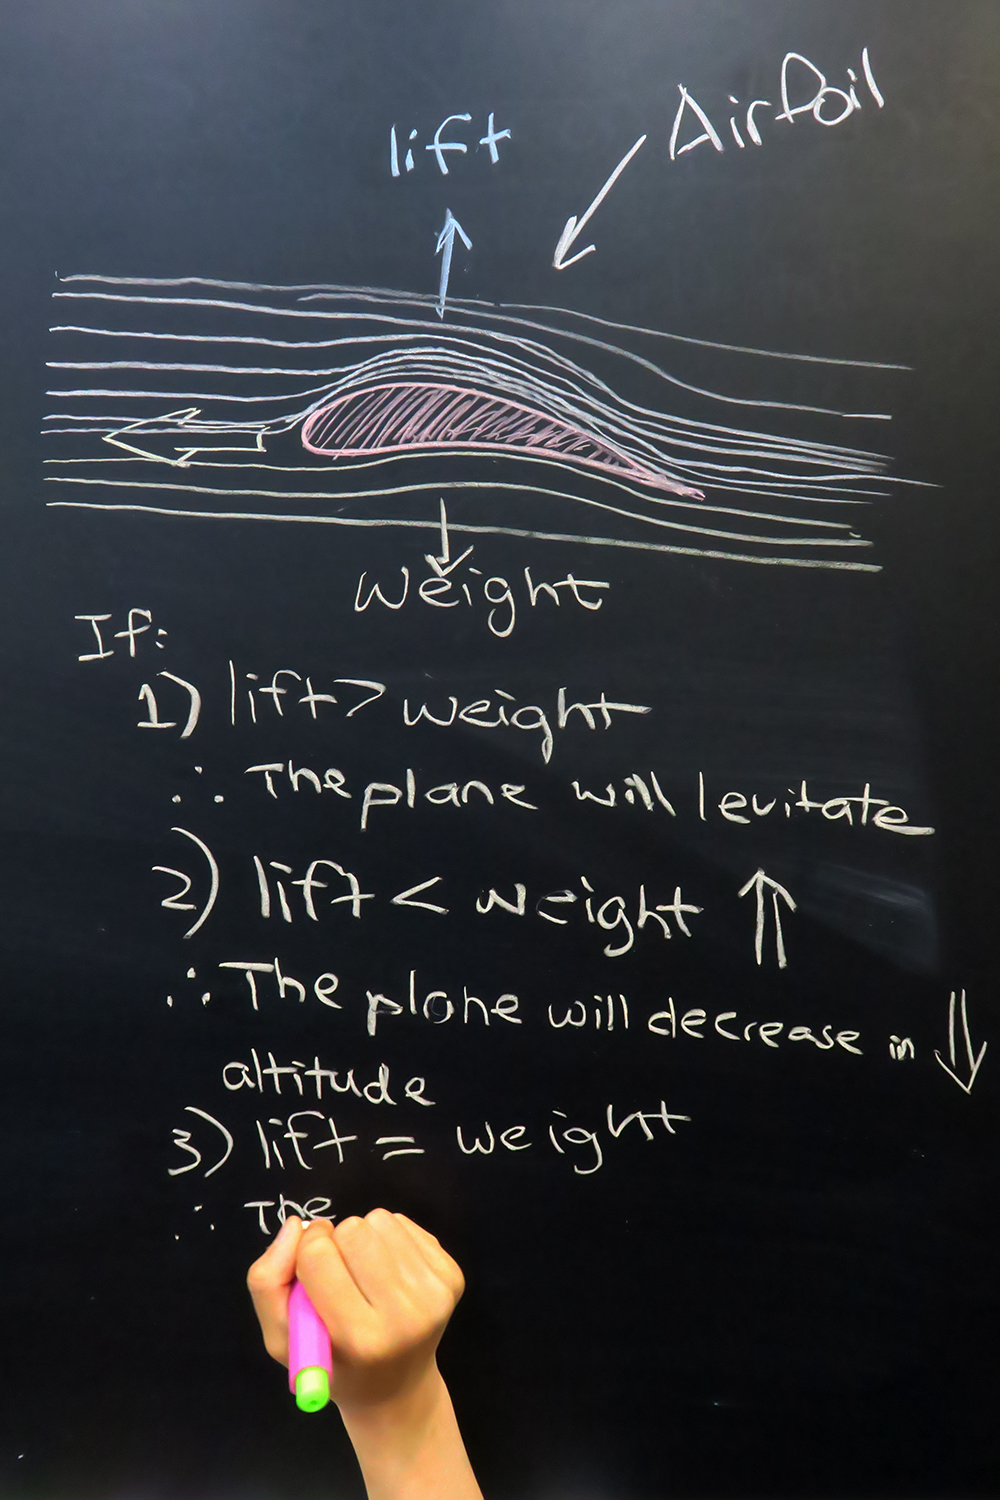 lift
Airfoil
Weight
If:
1) lift > weight
∴ The plane will levitate
2) lift < weight
∴ The plane will decrease in
altitude
3) lift = weight
∴ The